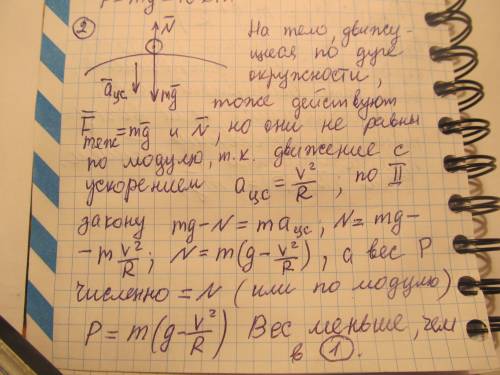 ② N̅ На тело, движу-
щееся по дуге
окружности,
a̅цс mg̅ тоже действуют
F̅тяж = mg̅ и N̅, но они не равны
по модулю, т.к. движение с
ускорением aцс = v²/R, по II
закону mg-N = maцс, N = mg-
- m v²/R; N = m(g - v²/R), а вес P
численно = N (или по модулю)
P = m(g - v²/R) Вес меньше, чем
в ①.